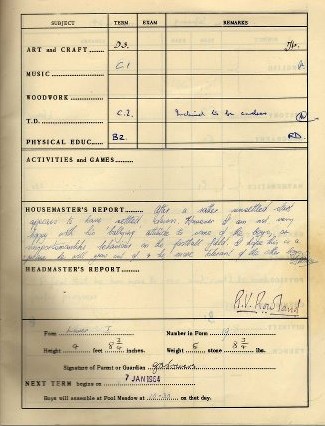 SUBJECT TERM EXAM REMARKS
ART and CRAFT D3.
MUSIC C1 A
WOODWORK
T.D. C2. Inclined to be careless
PHYSICAL EDUC. B2 RD
ACTIVITIES and GAMES
HOUSEMASTER'S REPORT After a rather unsettled start
appears to have settled down. However I am not very
happy with his bullying attitude to some of the boys, or
unsportsmanlike behaviour on the football field. I hope this is a
he will grow out of & be more tolerant of the other boys
HEADMASTER'S REPORT
R.V. Rowland
Form Lower I Number in Form
Height 4 feet 8 3/4 inches. Weight 5 stone 8 3/4 lbs.
Signature of Parent or Guardian
NEXT TERM begins on 7 JAN 1964
Boys will assemble at Pool Meadow at on that day.